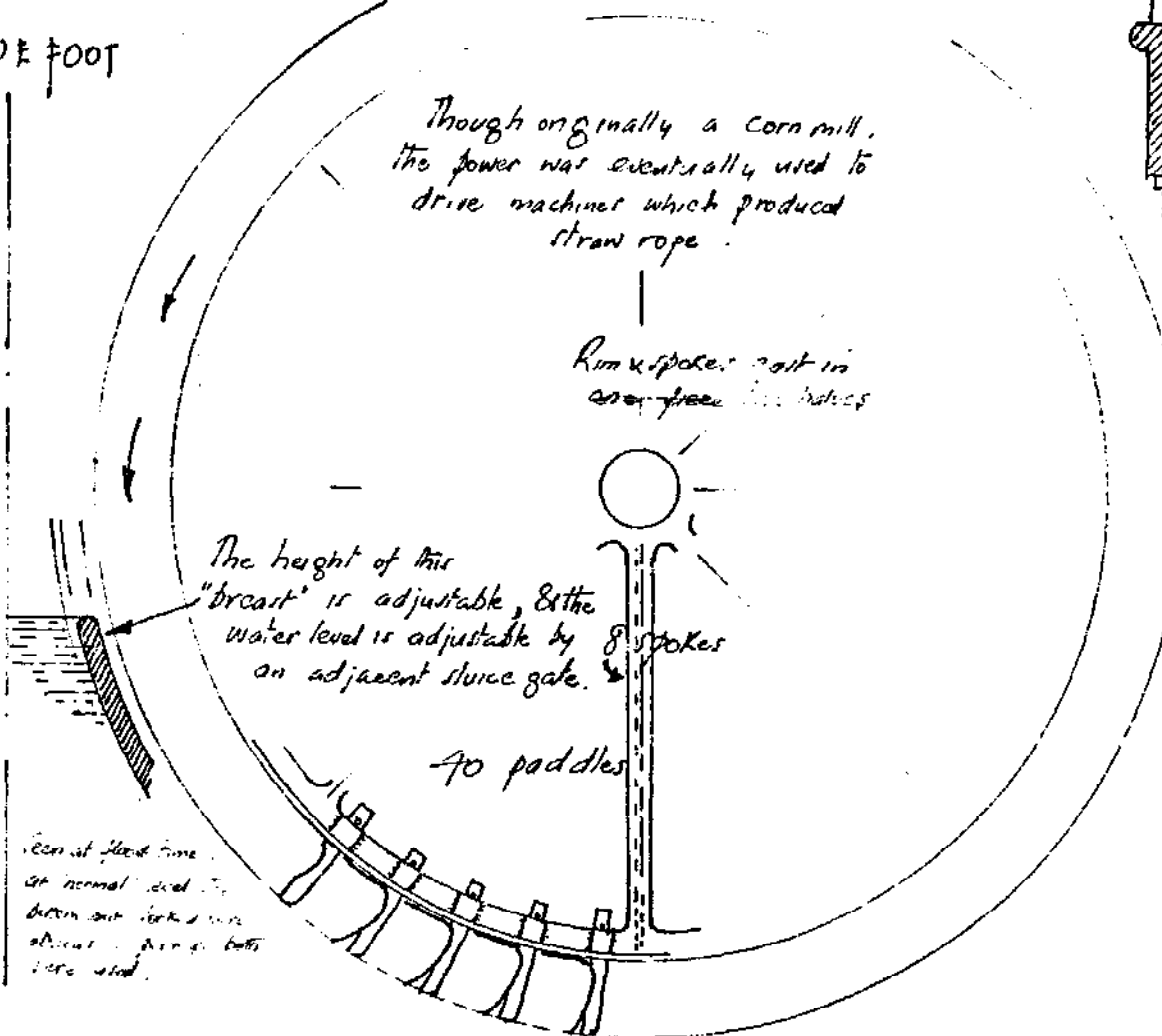 FOOT
Though originally a corn mill.
the power was eventually used to
drive machines which produced
straw rope.
Rim & spokes cast in
halves
The height of this
"breast" is adjustable, & the
water level is adjustable by
an adjacent sluice gate.
8 spokes
40 paddles
at flood time
at normal
were used.